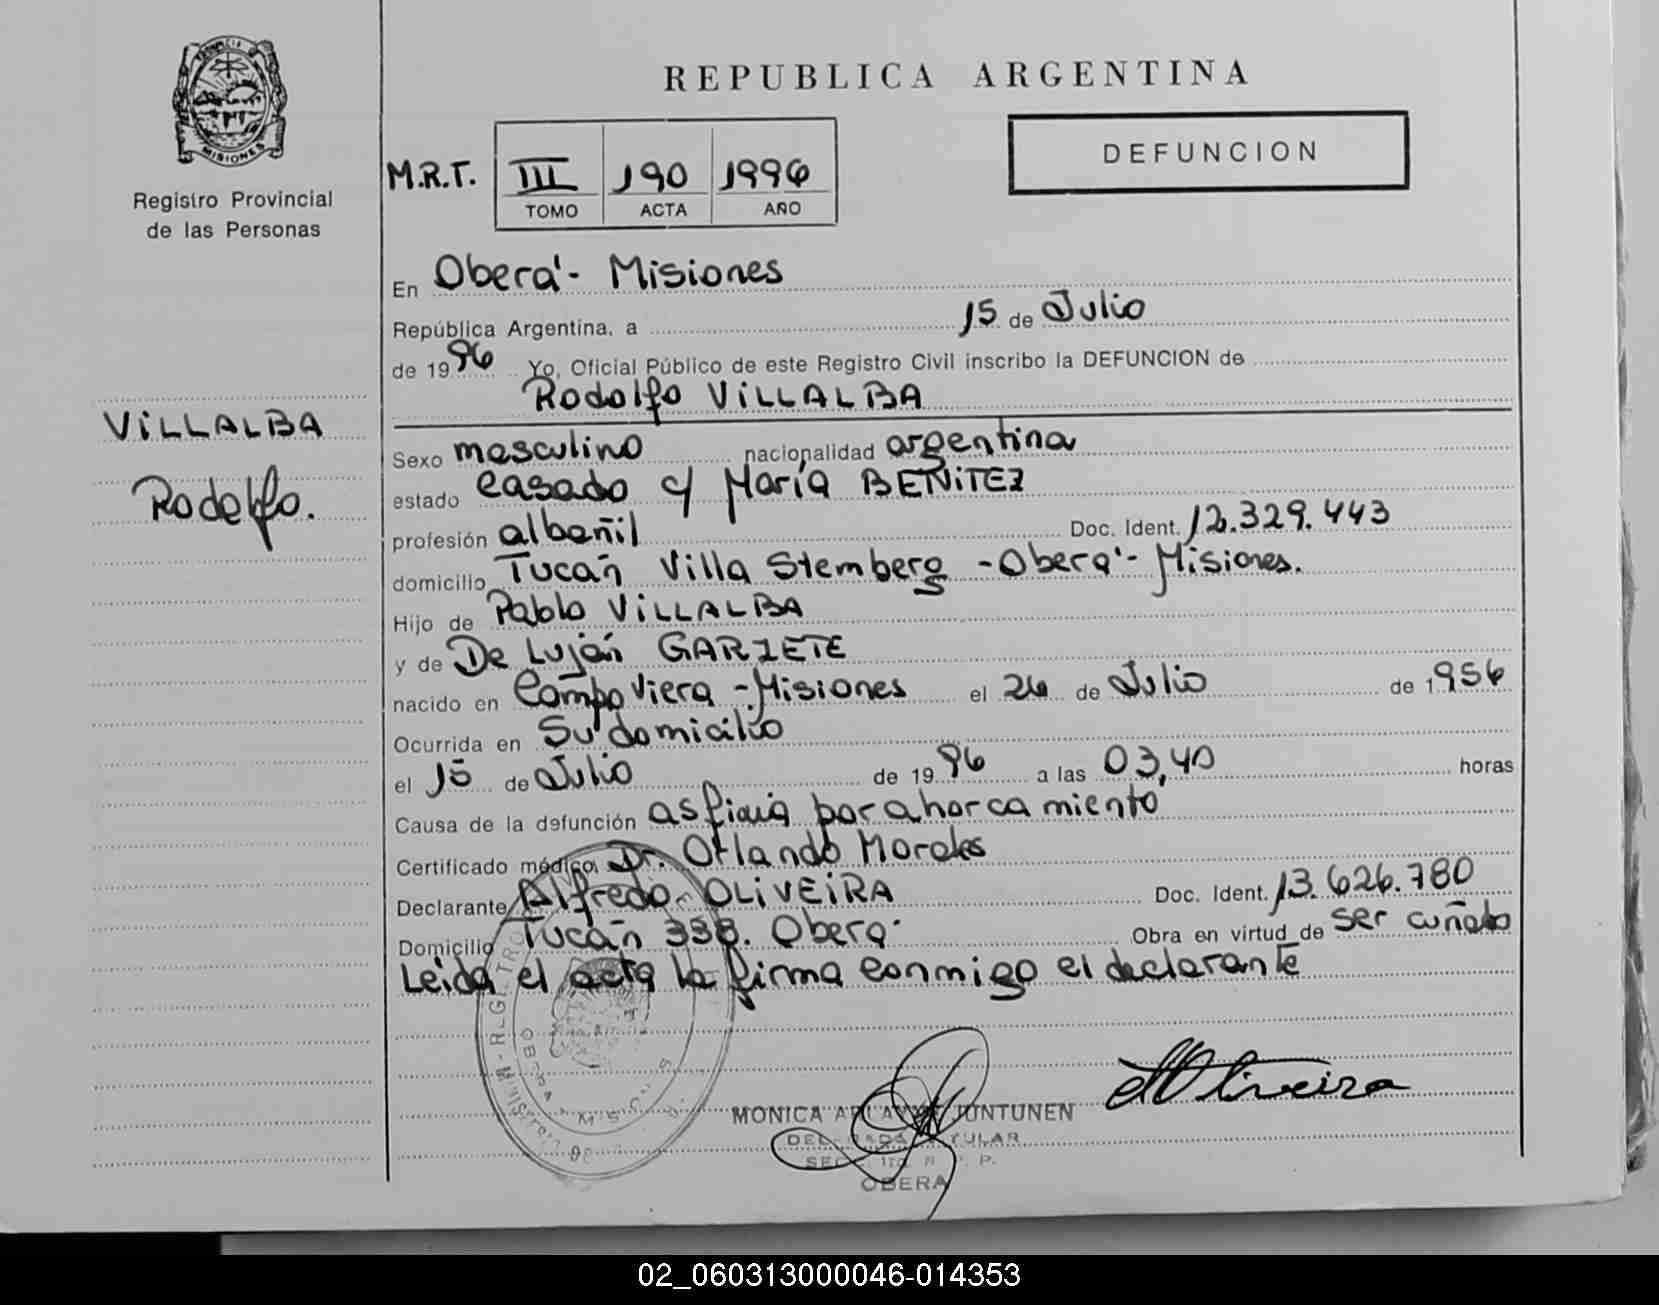 REPUBLICA ARGENTINA
DEFUNCION
MISIONES
Registro Provincial
de las Personas
M.R.T. III 190 1996
TOMO ACTA AÑO
En Oberá - Misiones
República Argentina, a 15 de Julio
de 1996 Yo, Oficial Público de este Registro Civil inscribo la DEFUNCION de
Rodolfo VILLALBA
VILLALBA
Rodolfo.
Sexo masculino nacionalidad argentina
estado casado c/ María BENITEZ
profesión albañil Doc. Ident. 12.329.443
domicilio Tucán Villa Stemberg - Oberá - Misiones.
Hijo de Pablo VILLALBA
y de De Luján GARZETE
nacido en Campo Viera - Misiones el 26 de Julio de 1956
Ocurrida en Su domicilio
el 15 de Julio de 1996 a las 03,40 horas
Causa de la defunción asfixia por ahorcamiento
Certificado médico Dr. Orlando Morales
Declarante Alfredo OLIVEIRA Doc. Ident. 13.626.780
Domicilio Tucán 338. Oberá Obra en virtud de ser cuñado
Leída el acta la firma conmigo el declarante
MONICA JUNTUNEN
OBERA
02_060313000046-014353